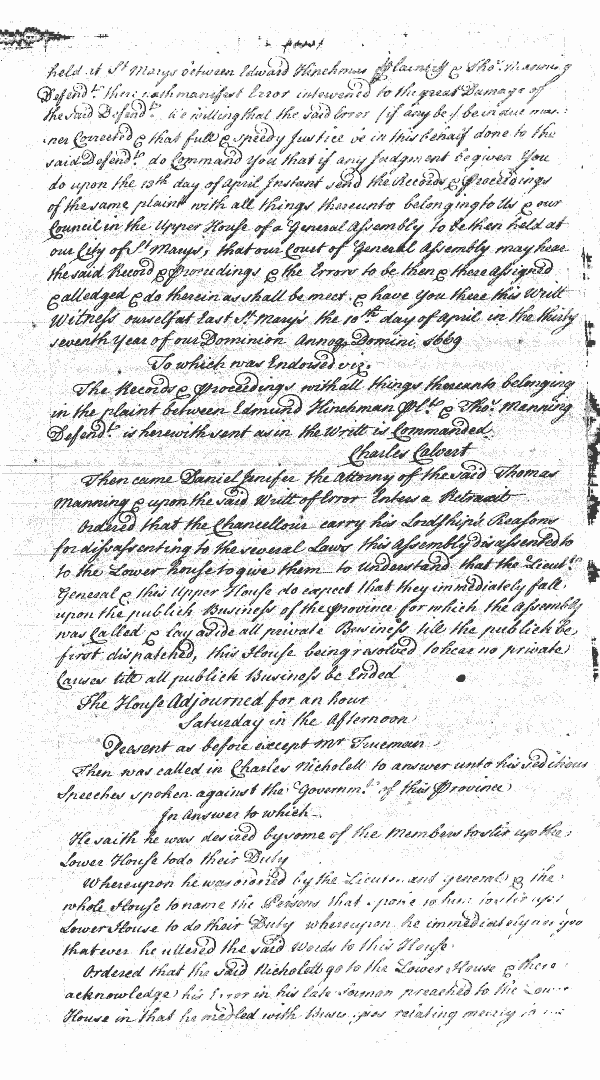 held at St Marys between Edward Hinchman Plaintiff & Thos. Manning
Defendt. there hath manifest Error intervened to the great Damage of
the said Defendt. we willing that the said Error (if any be) be in due man:
:ner Corrected & that full & speedy Justice be in this behalf done to the
said Defendt. do Command You that if any Judgment be given You
do upon the 13th day of April Instant send the Records & Proceedings
of the same plaint with all things thereunto belonging to Us & our
Council in the Upper House of a General Assembly to be then held at
our City of St Marys, that our Court of General Assembly may hear
the said Record & Proceedings & the Errors to be then & there assigned
& alledged & do therein as shall be meet. & have you there this Writt
Witness ourself at East St Mary's the 10th day of April in the thirty
seventh Year of our Dominion Annoq Domini 1669
To which was Endorsed viz.
The Records & Proceedings with all things thereunto belonging
in the plaint between Edmund Hinchman Plt. & Thos. Manning
Defendt. is herewith sent as in the Writt is Commanded.
Charles Calvert
Then came Daniel Jenifer the Attorny of the said Thomas
Manning & upon the said Writt of Error Enters a Retraxit
Ordered that the Chancellour carry his Lordship's Reasons
for dissassenting to the several Laws this Assembly disassented to
to the Lower house to give them to understand that the Lieut.
General & this Upper House do expect that they immediately fall
upon the publick Business of the Province for which the Assembly
was Called & lay aside all private Business till the publick be
first dispatched, this House being resolved to hear no private
Causes till all publick Business be Ended
The House Adjourned for an hour
Saturday in the Afternoon
Present as before except Mr Trueman
Then was called in Charles Nicholett to answer unto his seditious
Speeches spoken against the Governmt. of this Province
In Answer to which.
He saith he was desired by some of the Members to stir up the
Lower House to do their Duty
Whereupon he was ordered by the Lieutenant general & the
whole House to name the Persons that spoke to him to stir up
Lower House to do their Duty whereupon he immediately
that ever he uttered the said Words to this House.
Ordered that the said Nicholett go to the Lower House & there
acknowledge his Error in his late Sermon preached to the Lower
House in that he medled with Business relating meerly to